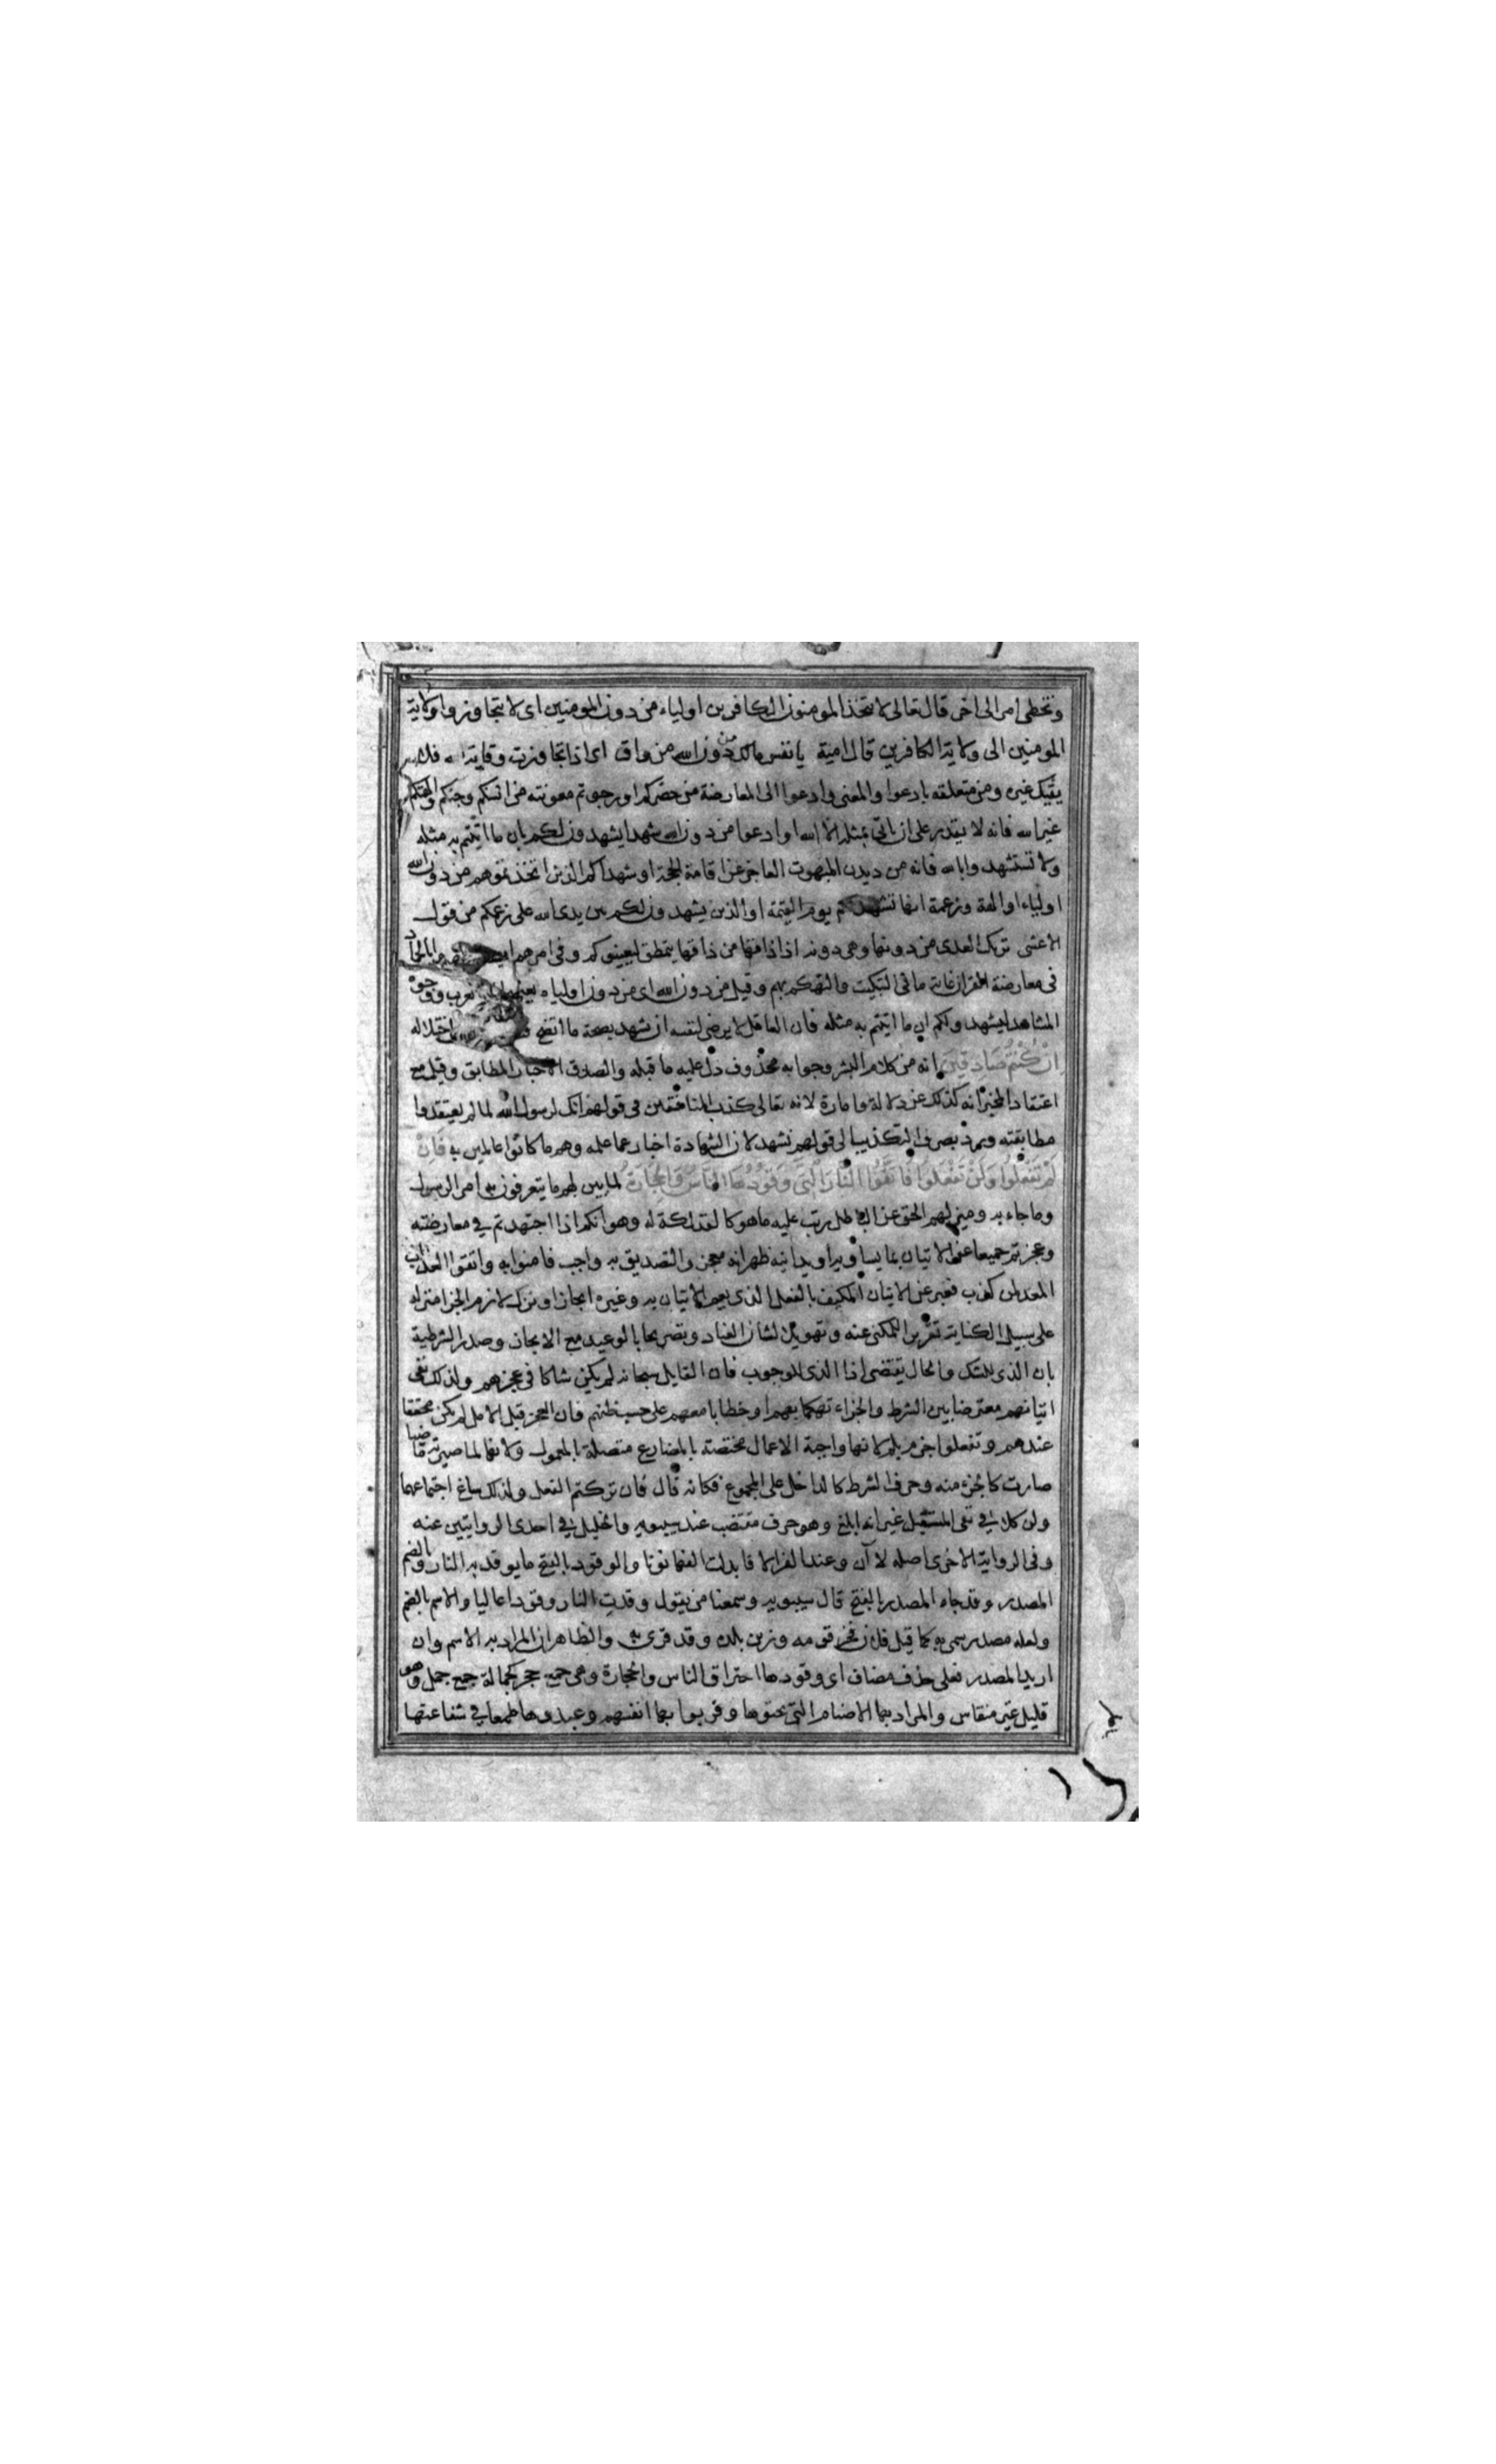 وتخطى امر الى اخر قال تعالى لا يتخذ المومنون الكافرين اولياء من دون المومنين اى لا يتجاوزوا ولاية
المومنين الى ولاية الكافرين قال امية يا نفس مالك من دون الله من واق اى اذا تجاوزت وقاية الله فلا
يقيك غيره ومن متعلقه بادعوا والمعنى وادعوا الى المعارضة من حضركم او رجوتم معونته من انسكم وجنكم والهتكم
غير الله فانه لا يقدر على ان ياتى بمثله الا الله او ادعوا من دون الله شهدا يشهدون لكم بان ما اتيتم به مثله
ولا تستشهدوا بالله فانه من ديدن المبهوت العاجز عن اقامة الحجة او شهداكم الذين اتخذتموهم من دون الله
اولياء او الهة وزعمة انها تشهد لكم يوم القيمة او الذين يشهدون لكم بين يدى الله على زعمكم من قول
الاعشى تريك القذى من دونها وهى دونه اذا ذاقها من ذاقها يتمطق ليعينوكم وفى امرهم
فى معارضة القران غاية ما فى التبكيت والتهكم بهم وقيل من دون الله اى من دون اولياء العرب ووجوه
المشاهد ليشهدوا لكم ان ما اتيتم به مثله فان العاقل لا يرضى لنفسه ان يشهد بصحة ما اتضح اختلاله
ان كنتم صادقين انه من كلام البشر وجوابه محذوف دل عليه ما قبله والصدق الاخبار المطابق وقيل مع
اعتقاد المخبر انه كذلك عن دلالة وامارة لانه تعالى كذب المنافقين فى قولهم انك لرسول الله لما لم يعتقدوا
مطابقته ورد بصرف التكذيب الى قولهم نشهد لان الشهادة اخبار عما علمه وهم ما كانوا عالمين به فان
لم تفعلوا ولن تفعلوا فاتقوا النار التى وقودها الناس والحجارة لما بين لهم ما يتعرفون به امر الرسول
وما جاء به وميز لهم الحق عن الباطل رتب عليه ما هو كالفذلكة له وهو انكم اذا اجتهدتم في معارضته
وعجزتم جميعا عن الاتيان بما يساويه او يدانيه ظهر انه معجز والتصديق به واجب فامنوا به واتقوا العذاب
المعد لمن كذب فعبر عن الاتيان المكيف بالفعل الذى يعم الاتيان به وغيره ايجازا ونزل لازم الجزا منزلته
على سبيل الكناية تقريرا للمكنى عنه وتهويلا لشان العناد وتصريحا بالوعيد مع الايجاز وصدر الشرطية
بان الذى للشك والحال يقتضى اذا الذى للوجوب فان القايل سبحانه لم يكن شاكا فى عجزهم ولذلك نفى
اتيانهم معترضا بين الشرط والجزاء تهكما بهم او خطابا معهم على حسب ظنهم فان العجز قبل الامل لم يكن محققا
عندهم وتفعلوا جزم بلم لانها واجبة الاعمال مختصة بالمضارع متصلة بالمعمول ولانها لما صيرته ماضيا
صارت كالجزء منه وحرف الشرط كالداخل على المجموع فكانه قال فان تركتم الفعل ولذلك ساغ اجتماعهما
ولن كلا في نفى المستقبل غير انه ابلغ وهو حرف مقتضب عند سيبويه والخليل في احدى الروايتين عنه
وفى الرواية الاخرى اصله لا ان وعند الفرا لا فابدلت الفها نونا والوقود بالفتح ما يوقد به النار وبالضم
المصدر وقد جاء المصدر بالفتح قال سيبويه وسمعنا من يقول وقدت النار وقودا عاليا والاسم بالضم
ولعله مصدر سمى به كما قيل فلان فخر قومه وزين بلده وقد قرى به والظاهر ان المراد به الاسم وان
اريد المصدر فعلى حذف مضاف اى وقودها احتراق الناس والحجارة وهى جمع حجر كجمالة جمع جمل وهو
قليل غير منقاس والمراد بها الاصنام التى نحتوها وقربوا بها انفسهم وعبدوها طمعا في شفاعتها